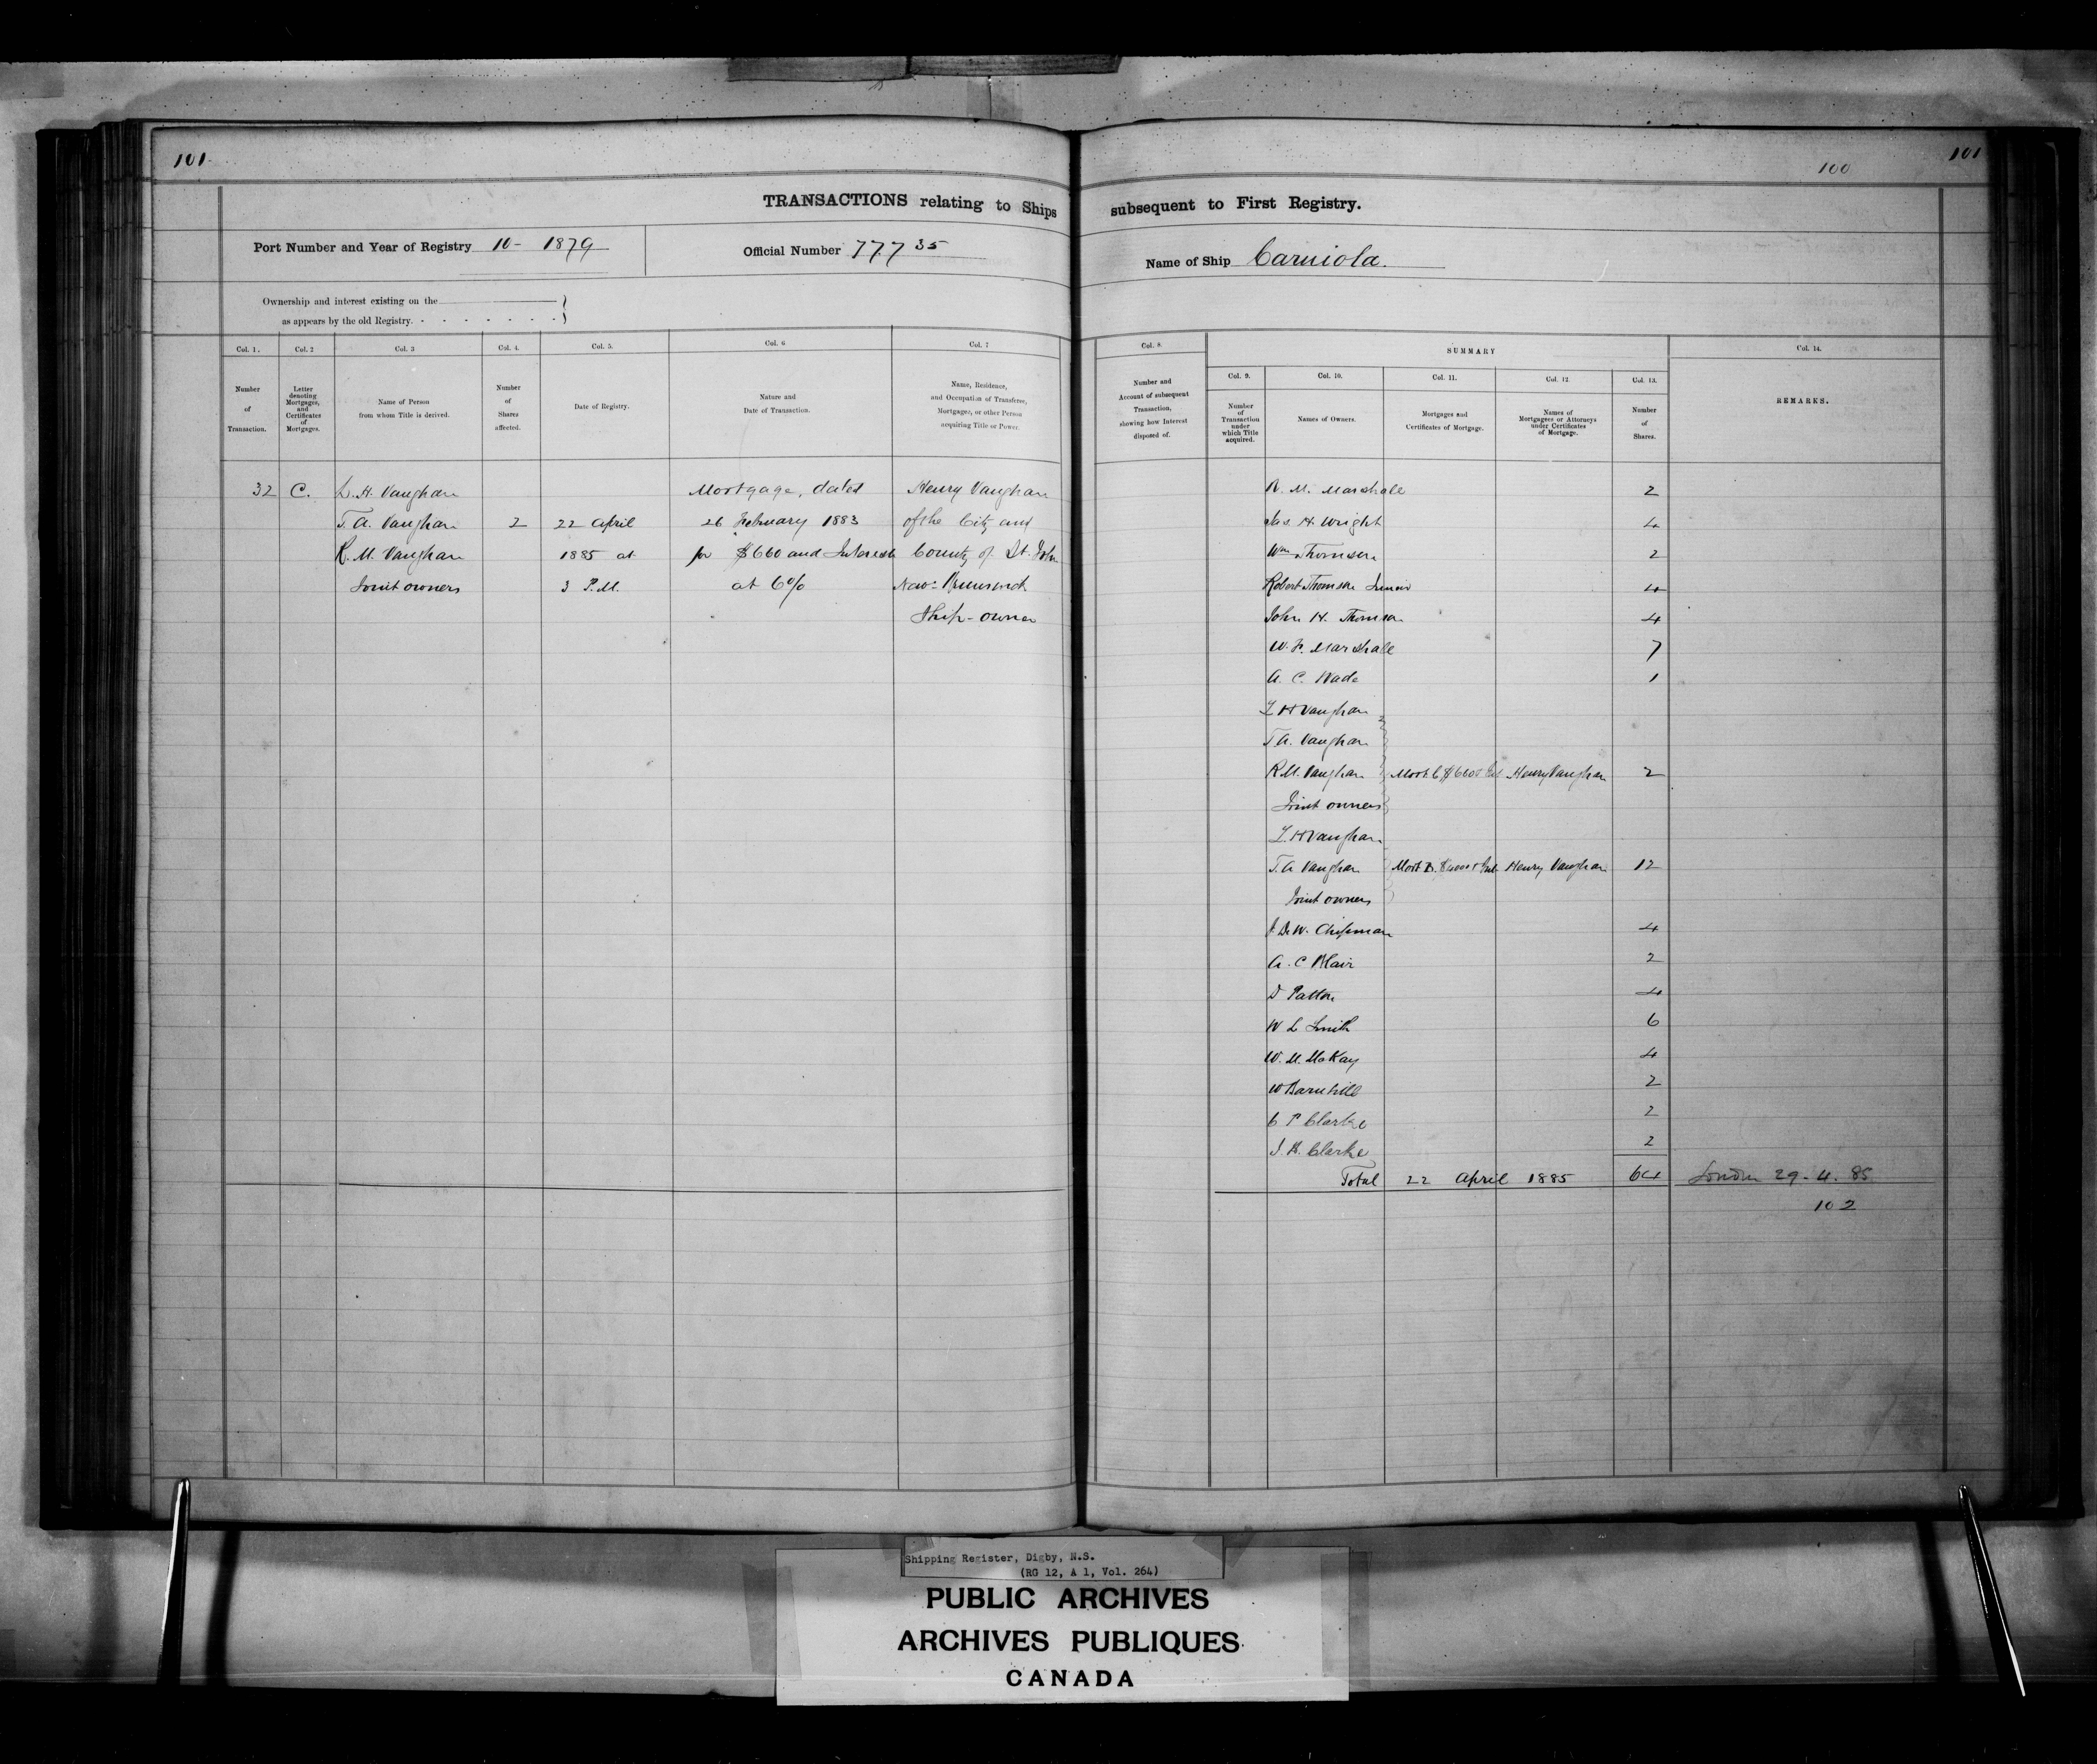 101
100
101
TRANSACTIONS relating to Ships subsequent to First Registry.
Port Number and Year of Registry 10 - 1879
Official Number 77735
Name of Ship Carniola.
Ownership and interest existing on the
as appears by the old Registry.
Col. 1. Col. 2 Col. 3 Col. 4. Col. 5. Col. 6 Col. 7
Number of Transaction.
Letter denoting Mortgages, and Certificates of Mortgages.
Name of Person from whom Title is derived.
Number of Shares affected.
Date of Registry.
Nature and Date of Transaction.
Name, Residence, and Occupation of Transferee, Mortgagee, or other Person acquiring Title or Power.
32 C. L. H. Vaughan Mortgage, dated Henry Vaughan
T. A. Vaughan 2 22 April 26 February 1883 of the City and
R. M. Vaughan 1885 at for $660 and Interest County of St. John
Joint owners 3 P.M. at 6% New Brunswick
Ship-owner
Col. 8. SUMMARY Col. 14.
Col. 9. Col. 10. Col. 11. Col. 12 Col. 13.
Number and Account of subsequent Transaction, showing how Interest disposed of.
Number of Transaction under which Title acquired.
Names of Owners.
Mortgages and Certificates of Mortgage.
Names of Mortgagees or Attorneys under Certificates of Mortgage.
Number of Shares.
REMARKS.
R. M. Marshall 2
Jas H. Wright 4
Wm Thomson 2
Robert Thomson Junior 4
John H. Thomson 4
W. F. Marshall 7
A. C. Wade 1
L H Vaughan
T A. Vaughan
R. M. Vaughan Mort. C $660 + Int Henry Vaughan 2
Joint owners
L. H Vaughan
T. A Vaughan Mort D. $4000 + Int Henry Vaughan 12
Joint owners
J. De W. Chipman 4
A. C Blair 2
D Patton 4
W L Smith 6
W. M. McKay 4
W Barnhill 2
C P Clarke 2
J. B. Clarke 2
Total 22 April 1885 64 London 29. 4. 85
102
Shipping Register, Digby, N.S.
(RG 12, A 1, Vol. 264)
PUBLIC ARCHIVES
ARCHIVES PUBLIQUES
CANADA